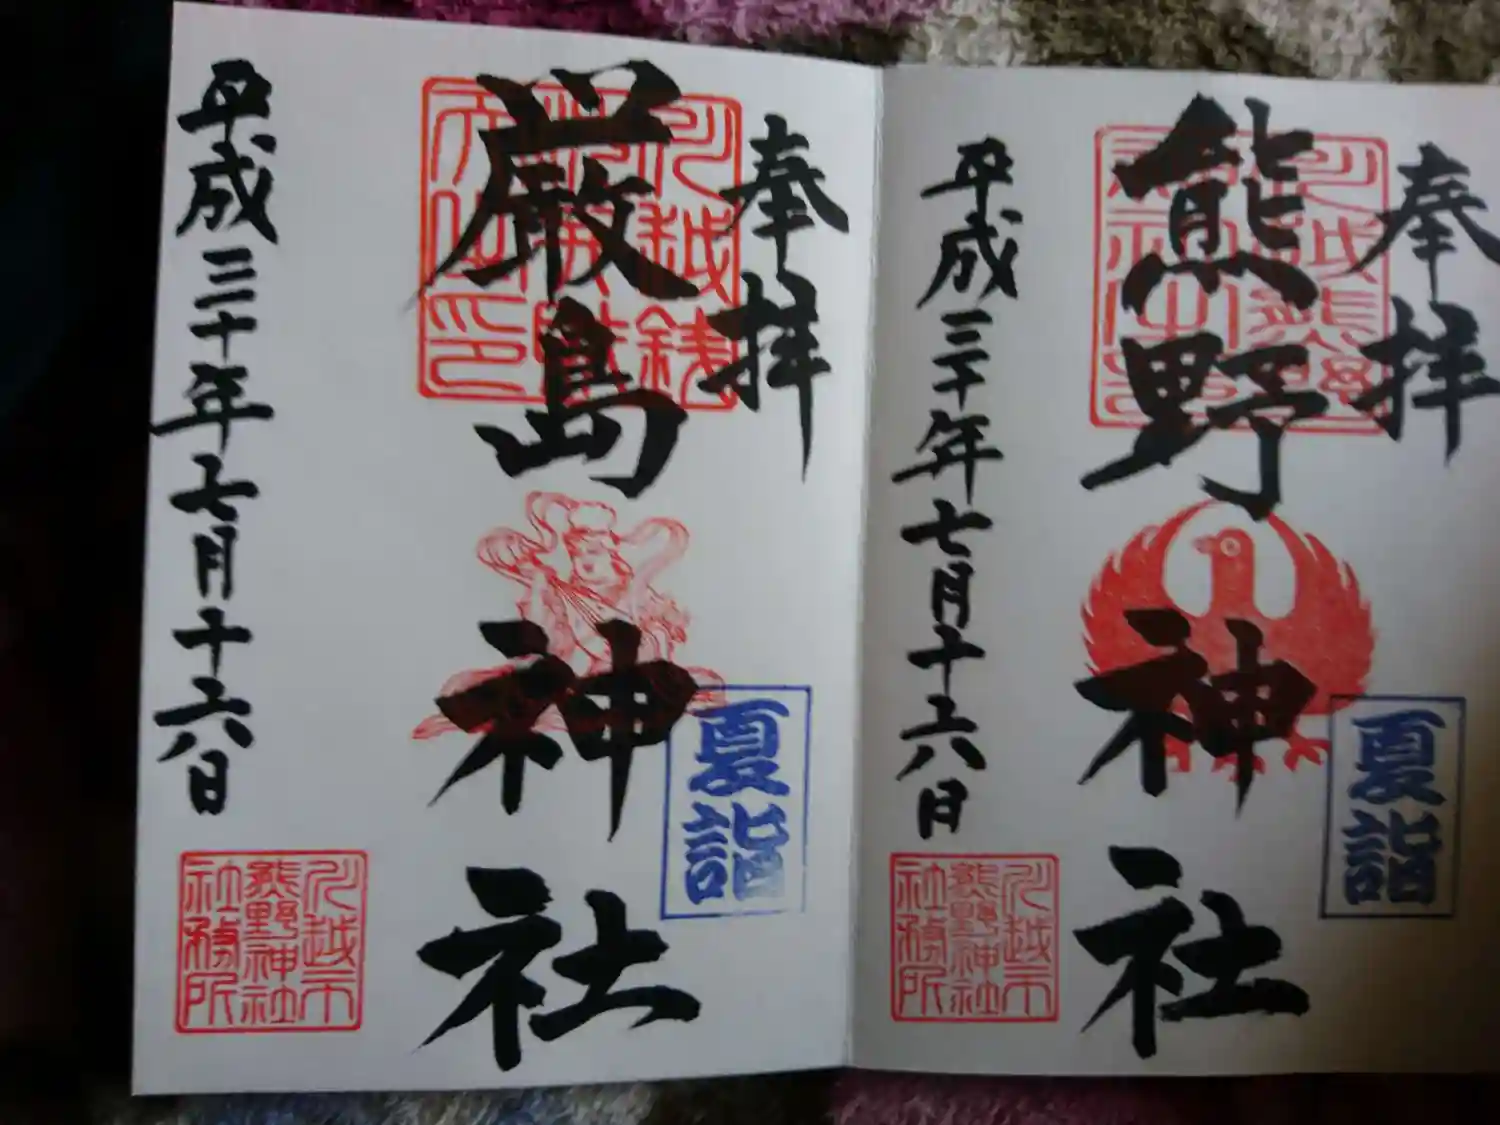 奉拝
熊野神社
夏詣
平成三十年七月十六日
川越市
熊野神社
社務所
奉拝
厳島神社
夏詣
平成三十年七月十六日
川越市
熊野神社
社務所